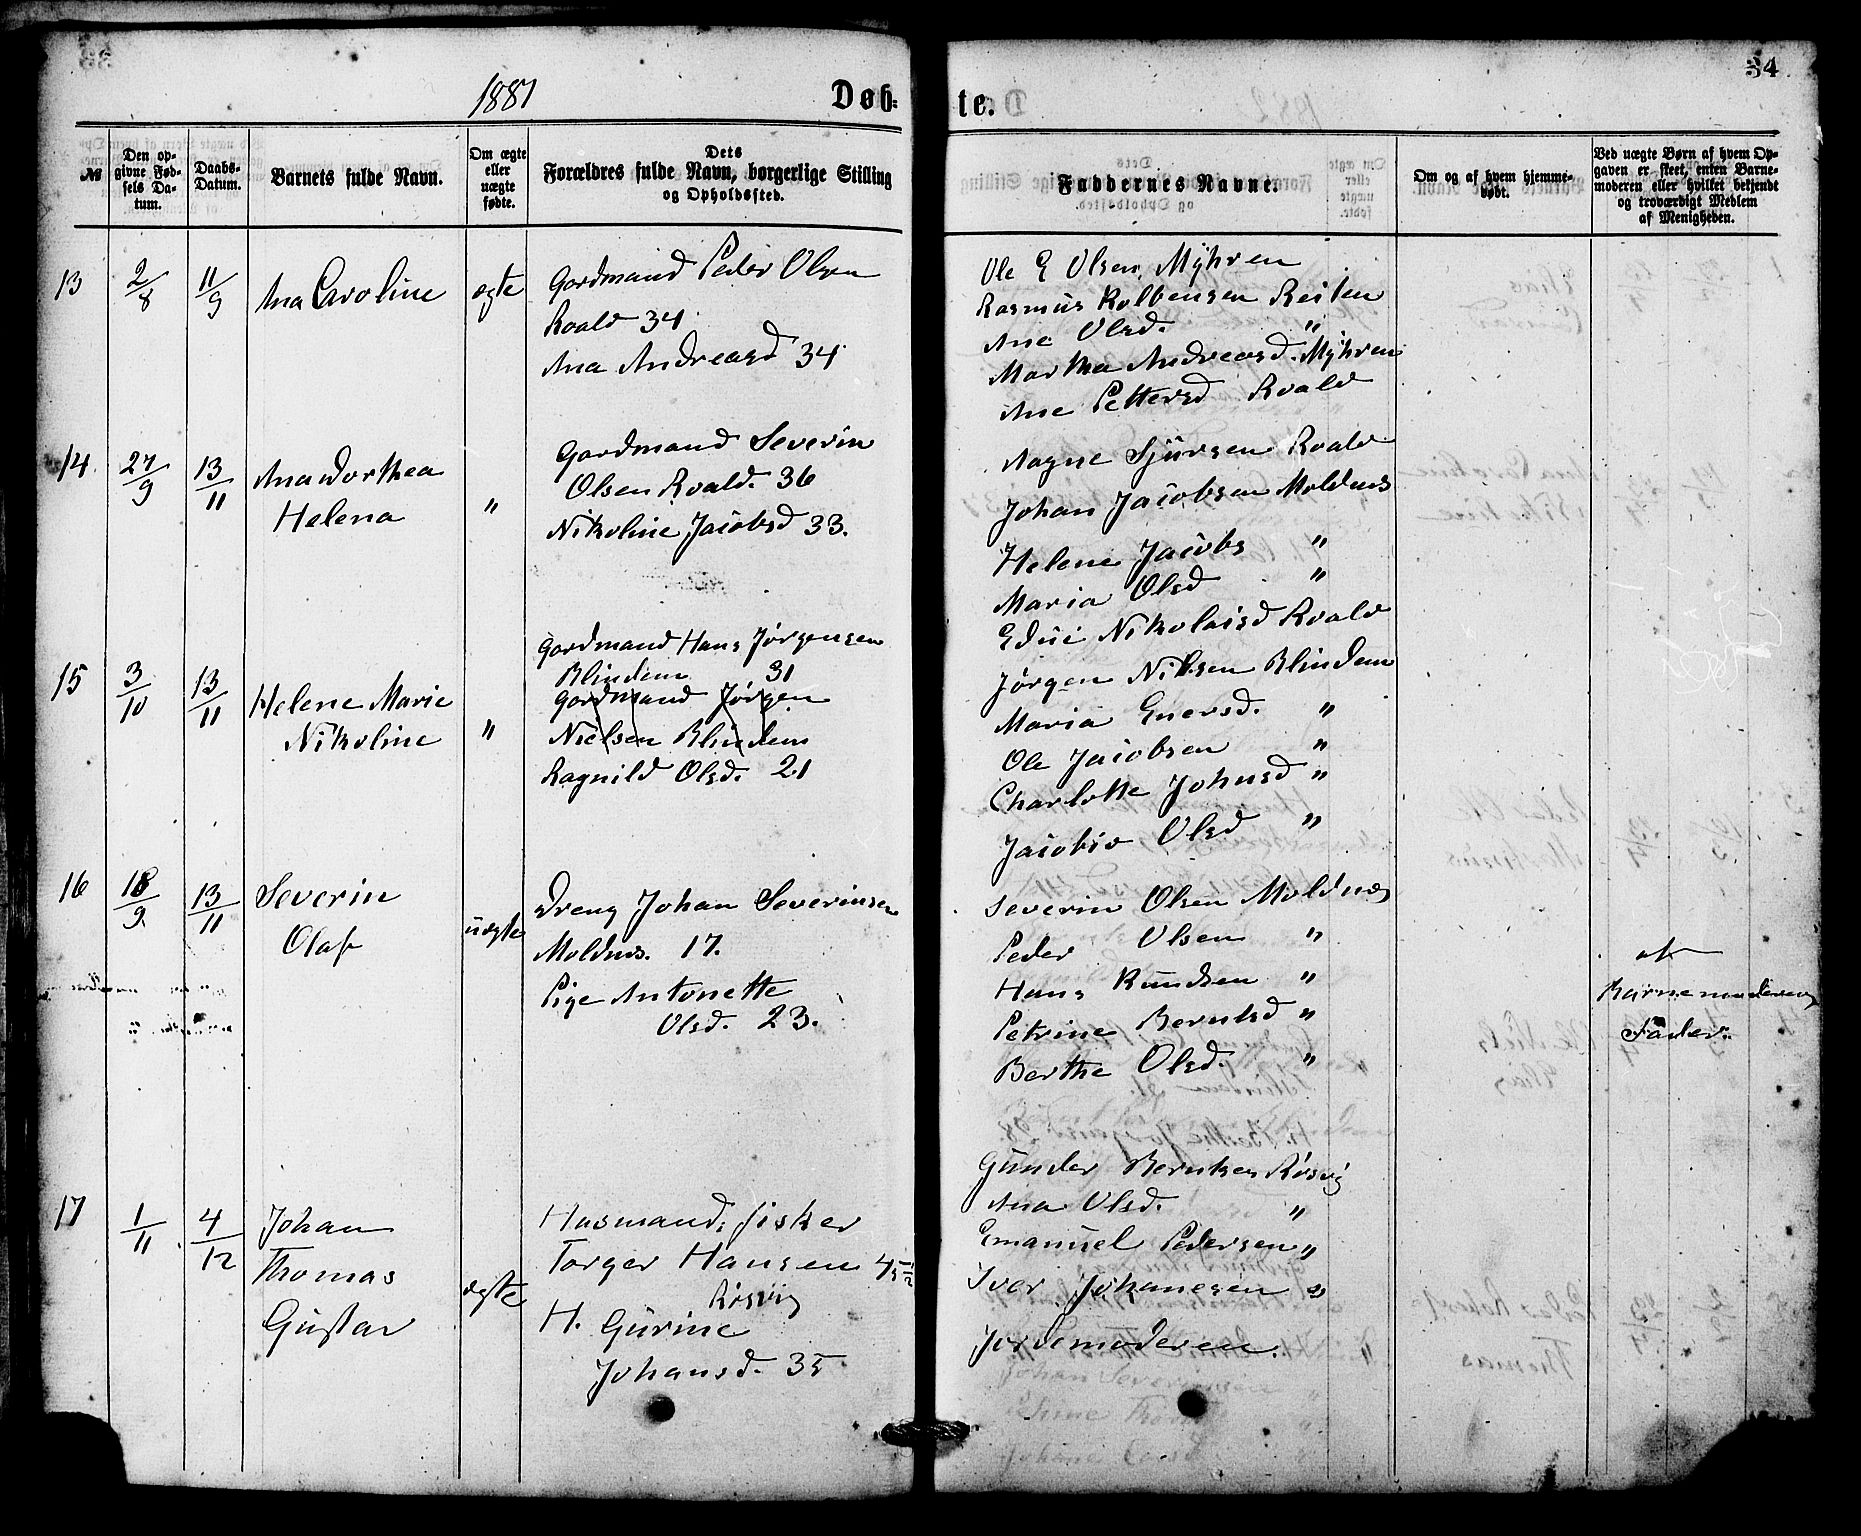 34
1881
Døb-
te.
№
Den op-
givne Fød-
sels Da-
tum.
Daabs-
Datum.
Barnets fulde Navn.
Om ægte
eller
uægte
fødte.
Dets
Forældres fulde Navn, borgerlige Stilling
og Opholdssted.
Faddernes Navne.
Om og af hvem hjemme-
døbt.
Ved uægte Børn af hvem Op-
gaven er skeet, enten Barne-
moderen eller hvilket bekjendt
og troværdigt Medlem
af Menigheden.
13
2/8
11/9
Ana Caroline
egte
Gordmand Peder Olsen
Roald 34
Ana Andreasd 34
Ole E Olsen Myhren
Rasmus Kolbensen Reiten
Ane Olsd. "
Martha Andreasd. Myhren
Ane Pettersd Roald
14
27/9
13/11
Ana Dorthea
Helena
"
Gordmand Severin
Olsen Roald. 36
Nikoline Jacobsd 33.
Aagne Sjursen Roald
Johan Jacobsen Moldnes
Helene Jacobs "
Maria Olsd "
Nikolaisd Roald
15
3/10
13/11
Helene Marie
Nikoline
"
Gordmand Hans Jørgensen
Blindem 31
Gordmand Jørgen
Nielsen Blindem
Ragnild Olsd. 21
Jørgen Nilsen Blindem
Maria Enersd. "
Ole Jacobsen "
Charlotte Johnsd "
Olsd "
16
18/9
13/11
Severin
Olaf
uegte
Dreng Johan Severinsen
Moldnes. 17.
Pige Antonette
Olsd. 23.
Severin Olsen Moldnes
Peder Olsen "
Hans Knudsen "
Petrine Berntsd "
Berthe Olsd. "
af
Barnemoderens
Fader.
17
1/11
4/12
Johan
Thomas
Gustav
egte
Husmand, fisker
Torger Hansen 45
Røsvig
H. Gurine
Johansd. 35
Gunder Røsvig
Ana Olsd. "
Emanuel Pedersen "
Iver Johanesen "
Jordemoderen.